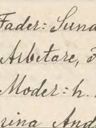 Fader: Suna
Arbetare, F
Moder: h.
rina And